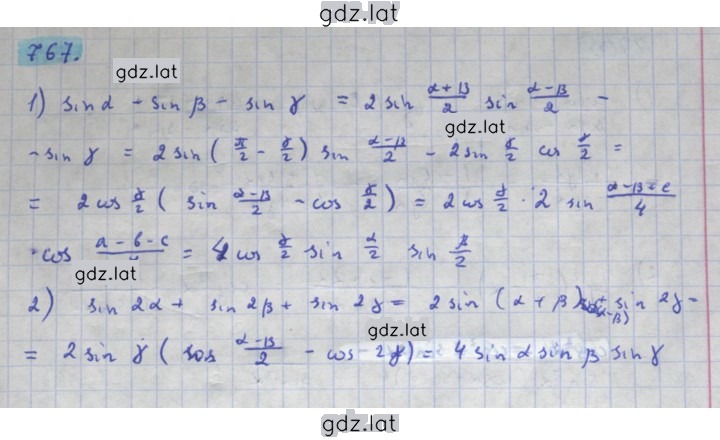 gdz.lat
767.
gdz.lat
1) sin α + sin β - sin γ = 2 sin (α+β)/2 sin (α-β)/2 -
gdz.lat
- sin γ = 2 sin (π/2 - γ/2) sin (α-β)/2 - 2 sin γ/2 cos γ/2 =
= 2 cos γ/2 ( sin (α-β)/2 - cos γ/2 ) = 2 cos γ/2 · 2 sin (α-β+c)/4
· cos (a-b-c)/4 = 4 cos γ/2 sin α/2 sin β/2
gdz.lat
2) sin 2α + sin 2β + sin 2γ = 2 sin (α+β) cos(α-β) + sin 2γ =
gdz.lat
= 2 sin γ ( cos (α-β)/2 - cos 2γ ) = 4 sin α sin β sin γ
gdz.lat